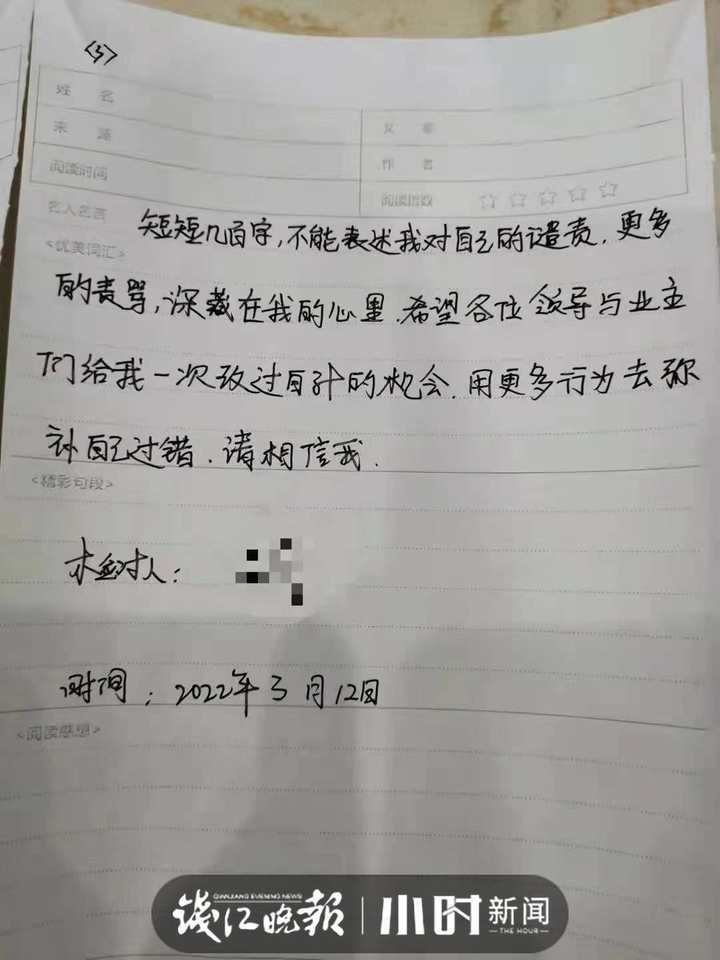 <3>
姓 名
来 源
文 章
阅读时间
作 者
阅读指数 ☆☆☆☆☆
名人名言
短短几百字,不能表述我对自己的谴责,更多
<优美词汇>
的责骂,深藏在我的心里.希望各位领导与业主
们给我一次改过自新的机会.用更多行为去弥
补自己过错.请相信我.
<精彩句段>
检讨人:
时间:2022年3月12日
<阅读感想>
QIANJIANG EVENING NEWS
钱江晚报 | 小时新闻
THE HOUR